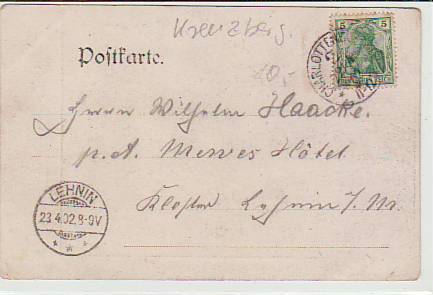 Kreuzberg.
Postkarte.
10,-
5 5
CHARLOTTE
Herrn Wilhelm Haacke.
p. A. Mewes Hôtel
Kloster Lehnin i/M.
LEHNIN
23.4.02.8-9V